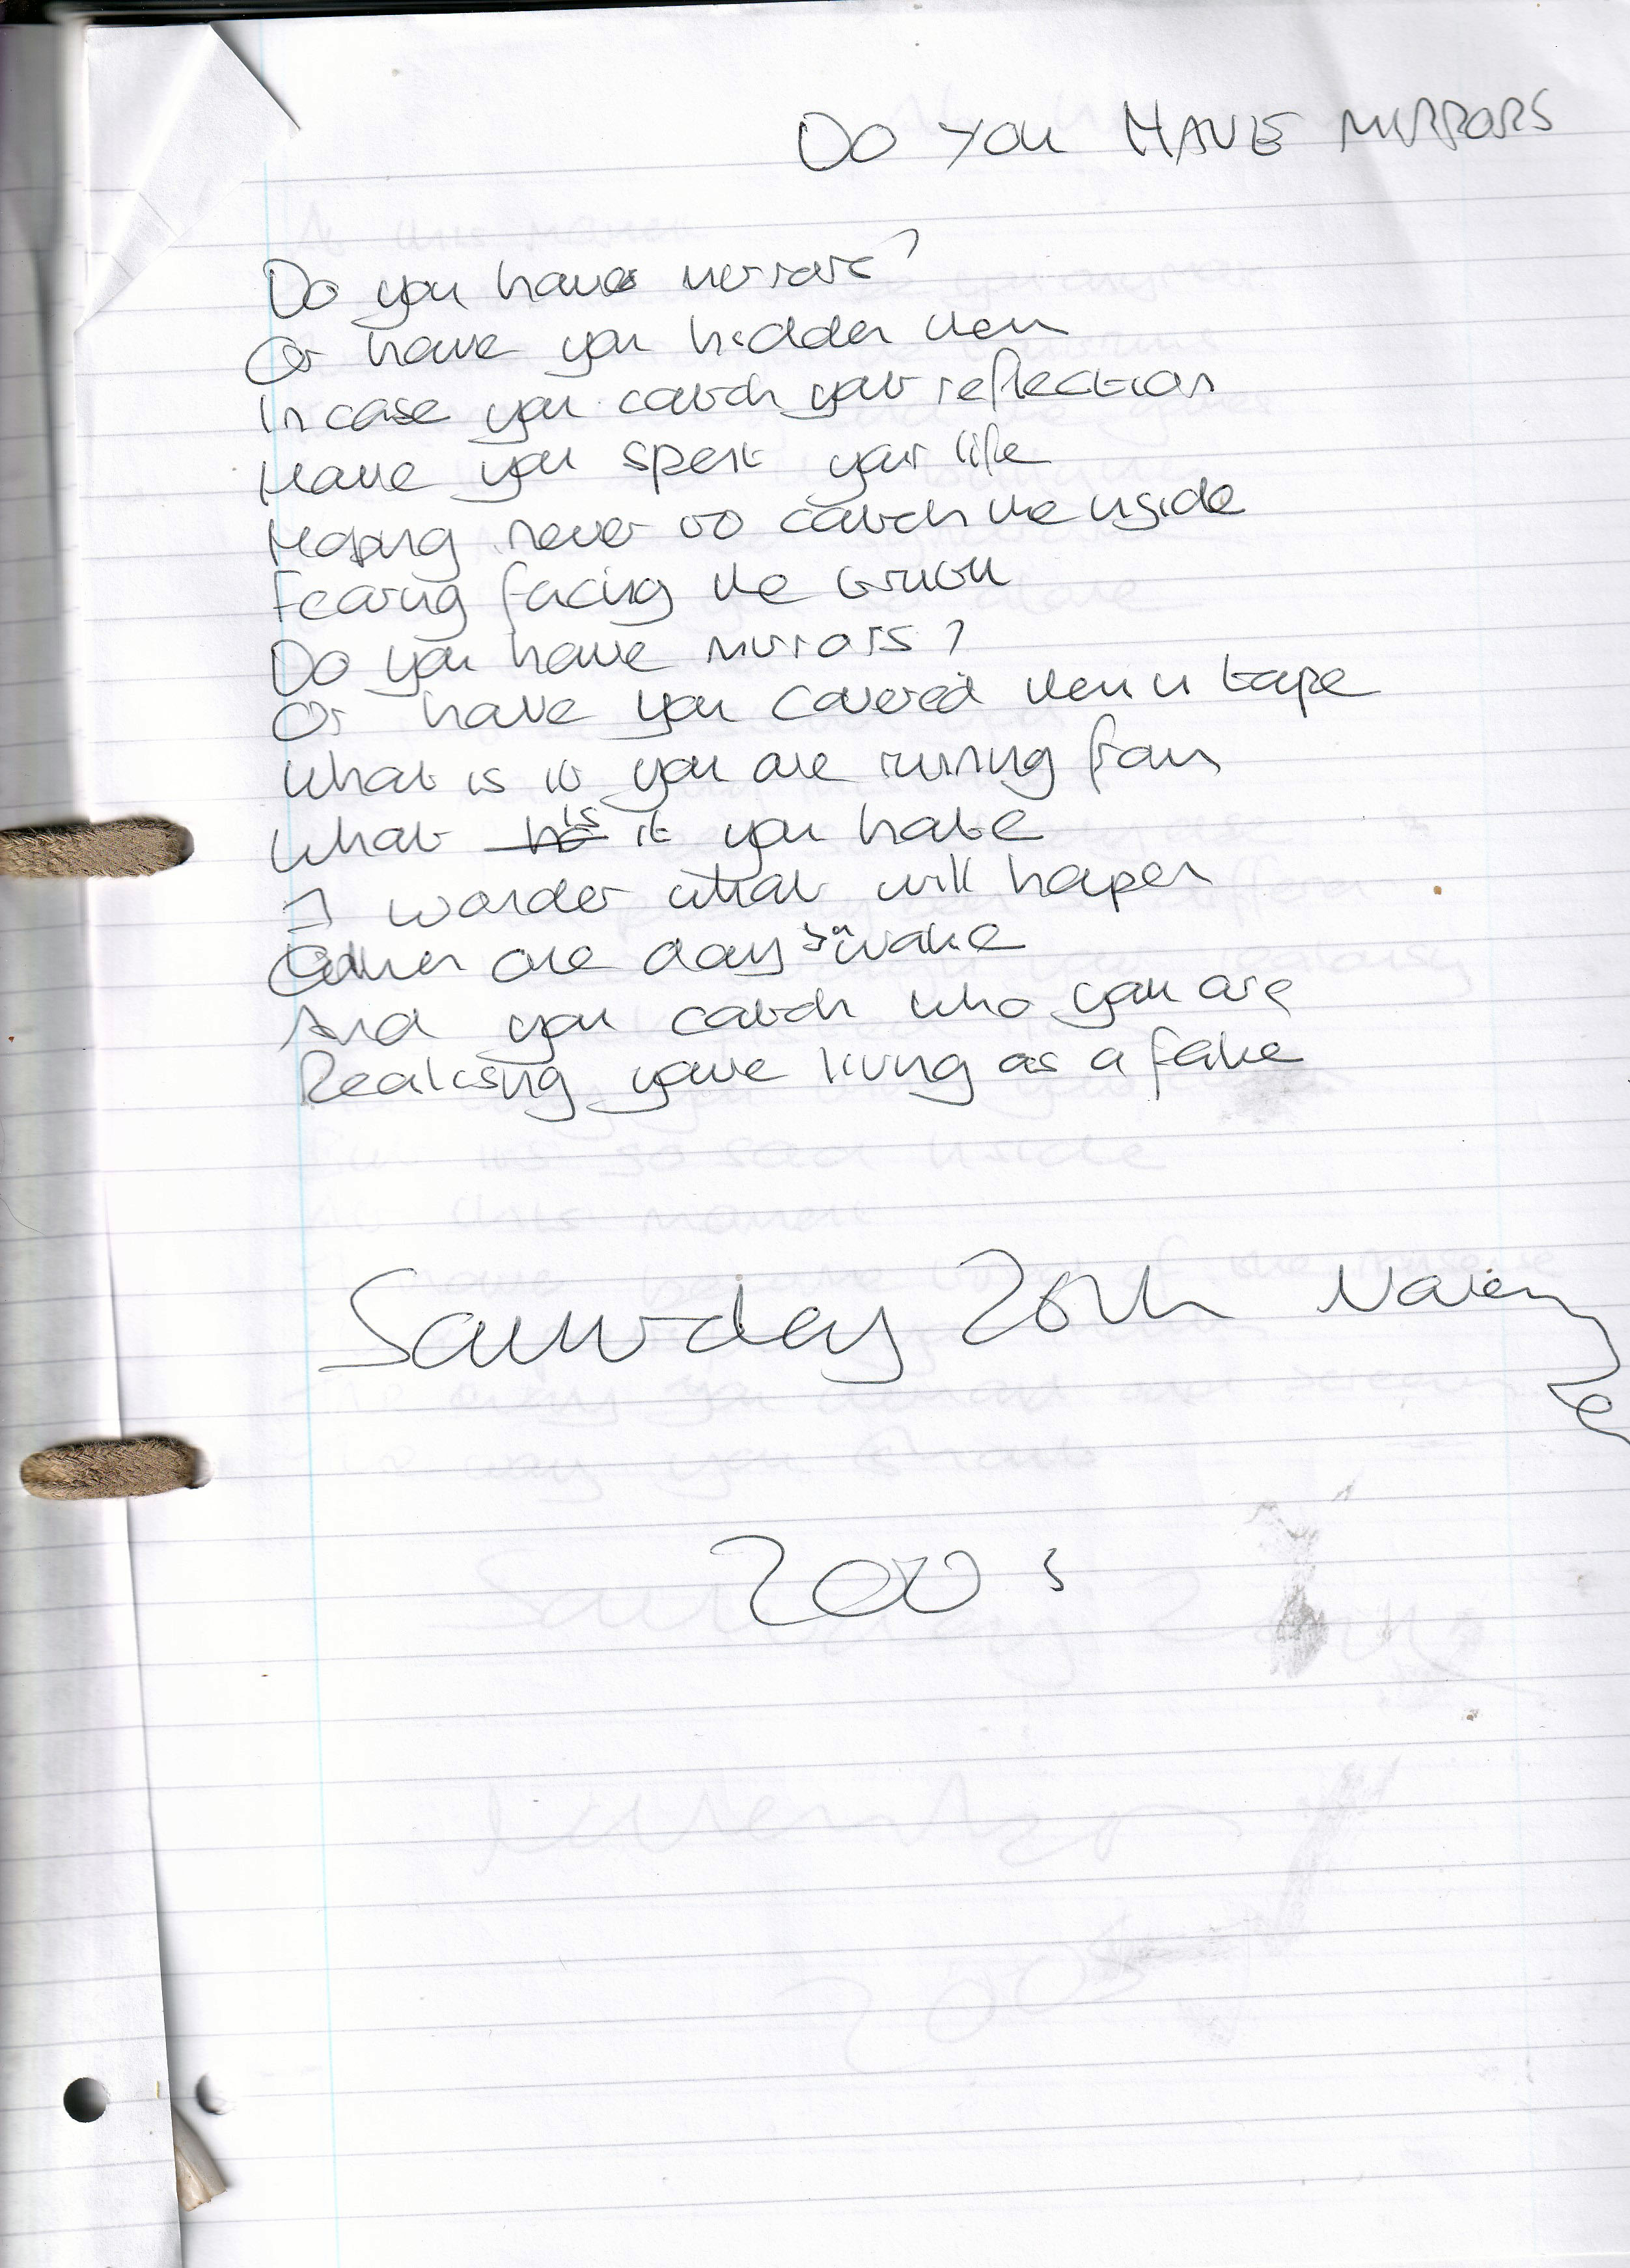 DO YOU HAVE MIRRORS
Do you have mirrors?
Or have you hidden them
In case you catch your reflection
Have you spent your life
Hoping never to catch the inside
Fearing facing the truth
Do you have mirrors?
Or have you covered them in tape
What is it you are running from
What is it you hate
I wonder what will happen
When one day you wake
And you catch who you are
Realising youve living as a fake
Saturday 20th
200